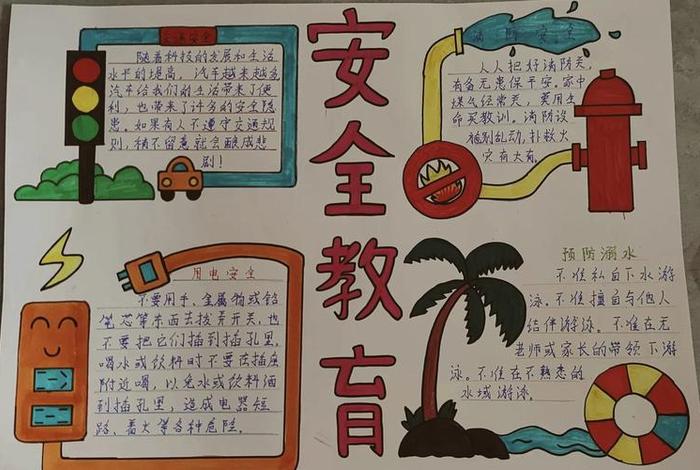 安全教育
交通安全
随着科技的发展和生活
水平的提高，汽车越来越多
汽车给我们的生活带来了便
利，也带来了许多的安全隐
患。如果有人不遵守交通规
则，稍不留意就会酿成悲
剧！
消防安全
人人把好消防关，
有备无患保平安。家中
煤气经常关，要用生
命买教训。消防设
施别乱动，扑救火
灾有大有。
用电安全
不要用手、金属物或铅
笔芯等东西去拨弄开关，也
不要把它们插到插孔里。
喝水或饮料时不要在插座
附近喝，以免水或饮料洒
到插孔里，造成电器短
路、着火等各种危险。
预防溺水
不准私自下水游
泳。不准擅自与他人
结伴游泳。不准在无
老师或家长的带领下游
泳。不准在不熟悉的
水域游泳。